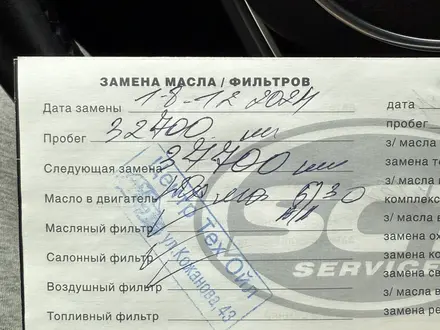 ЗАМЕНА МАСЛА / ФИЛЬТРОВ
Дата замены 18-12 2024
Пробег 32700
Следующая замена 37700
Масло в двигатель 5/30
Масляный фильтр
Салонный фильтр
Воздушный фильтр
Топливный фильтр
Центр Тех Ойл
ул. Кожанова, 43
дата
пробег
з/ масла
замена
з/ масла
комплекс
з/ масла в
замена ох
замена ко
замена св
замена
замена ре
SERVICE